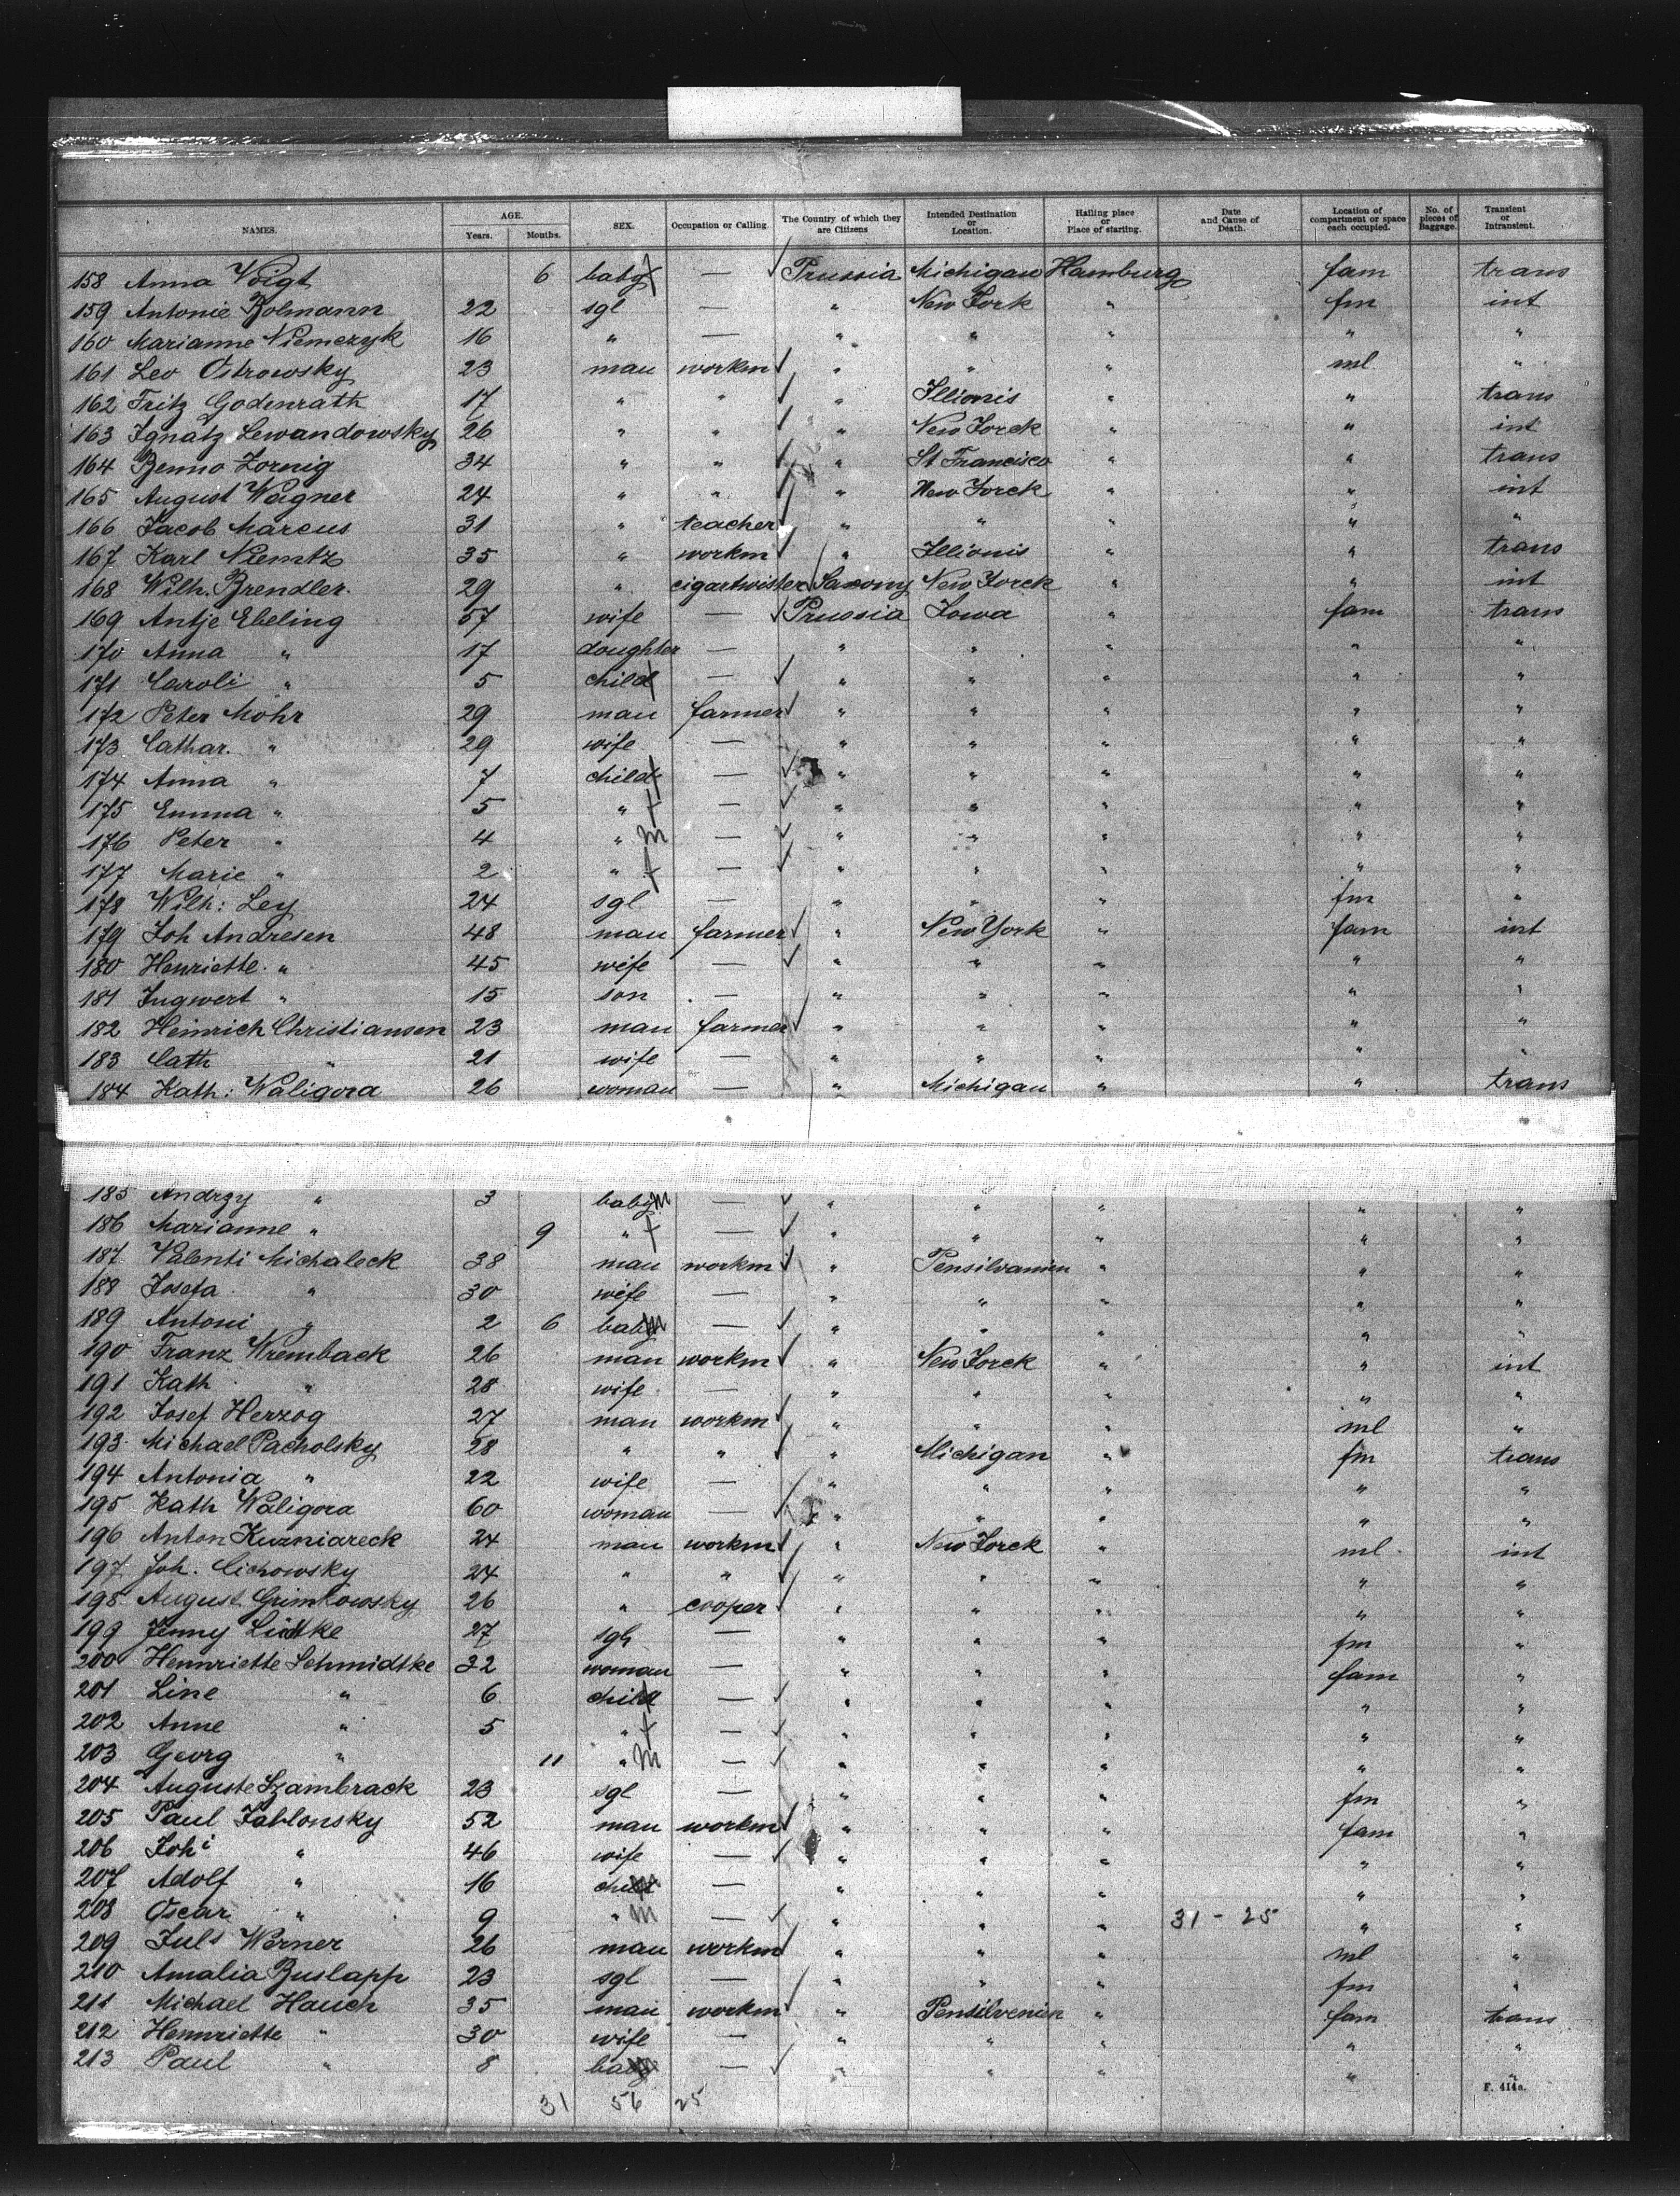 NAMES. AGE. Years. Months. SEX. Occupation or Calling. The Country of which they are Citizens Intended Destination or Location. Hailing place or Place of starting. Date and Cause of Death. Location of compartment or space each occupied. No. of pieces of Baggage. Transient or Intransient.
158 Anna Voigt 6 baby f — ✓ Prussia Michigan Hamburg fam trans
159 Antonie Bolmann 22 sgl — " New York " fm int
160 Marianne Niemczyk 16 " — " " " " "
161 Leo Ostrowsky 23 man workm ✓ " " " ml "
162 Fritz Godenrath 17 " " ✓ " Illionis " " trans
163 Ignatz Lewandowsky 26 " " ✓ " New Jorck " " int
164 Benno Zornig 34 " " ✓ " St Francisco " " trans
165 August Wagner 24 " " ✓ " New Jorck " " int
166 Jacob Marcus 31 " teacher ✓ " " " " "
167 Karl Niemtz 35 " workm ✓ " Illionis " " trans
168 Wilh. Brendler. 29 " cigartwister ✓ Saxony New Jorck " " int
169 Antje Ebeling 57 wife — ✓ Prussia Iowa " fam trans
170 Anna " 17 doughter — " " " " "
171 Caroli " 5 child f — ✓ " " " " "
172 Peter Mohr 29 man farmer ✓ " " " " "
173 Cathar. " 29 wife — " " " " "
174 Anna " 7 child f — ✓ " " " " "
175 Emma " 5 " f — ✓ " " " " "
176 Peter " 4 " m — ✓ " " " " "
177 Marie " 2 " f — ✓ " " " " "
178 Wilh: Ley 24 sgl — " " " fm "
179 Joh Andresen 48 man farmer ✓ " New York " fam int
180 Henriette " 45 wife — ✓ " " " " "
181 Ingwert " 15 son — " " " " "
182 Heinrich Christiansen 23 man farmer ✓ " " " " "
183 Cath " 21 wife — " " " " "
184 Kath: Waligora 26 woman — " Michigan " " trans
185 Andrzy " 3 baby m — ✓ " " " " "
186 Marianne " 9 " f — ✓ " " " " "
187 Valenti Michaleck 38 man workm ✓ " Pensilvanien " " "
188 Josefa " 30 wife — " " " " "
189 Antoni " 2 6 baby m — ✓ " " " " "
190 Franz Wremback 26 man workm ✓ " New Jorck " " int
191 Kath " 28 wife — " " " " "
192 Josef Herzog 27 man workm ✓ " " " ml "
193 Michael Pacholsky 28 " " ✓ " Michigan " fm trans
194 Antonia " 22 wife — " " " " "
195 Kath Waligora 60 woman — ✓ " " " " "
196 Anton Kuzniareck 24 man workm ✓ " New Jorck " ml int
197 Joh. Cichowsky 24 " " ✓ " " " " "
198 August Grimkowsky 26 " cooper ✓ " " " " "
199 Jenny Lidtke 27 sgl — " " " fm "
200 Hennriette Schmidtke 32 woman — " " " fam "
201 Line " 6 child f — ✓ " " " " "
202 Anne " 5 " f — ✓ " " " " "
203 Georg " 11 " m — ✓ " " " " "
204 Auguste Szambrack 23 sgl — " " " fm "
205 Paul Jablonsky 52 man workm ✓ " " " fam "
206 Johi " 46 wife — ✓ " " " " "
207 Adolf " 16 child — " " " " "
208 Oscar " 9 " m — ✓ " " " 31 - 25 " "
209 Juls Werner 26 man workm ✓ " " " ml "
210 Amalia Buslapp 23 sgl — " " " fm "
211 Michael Hauch 35 man workm ✓ " Pensilvenien " fam trans
212 Hennriette " 30 wife — " " " " "
213 Paul " 8 baby m — ✓ " " " " "
31 56 25
F. 414a.